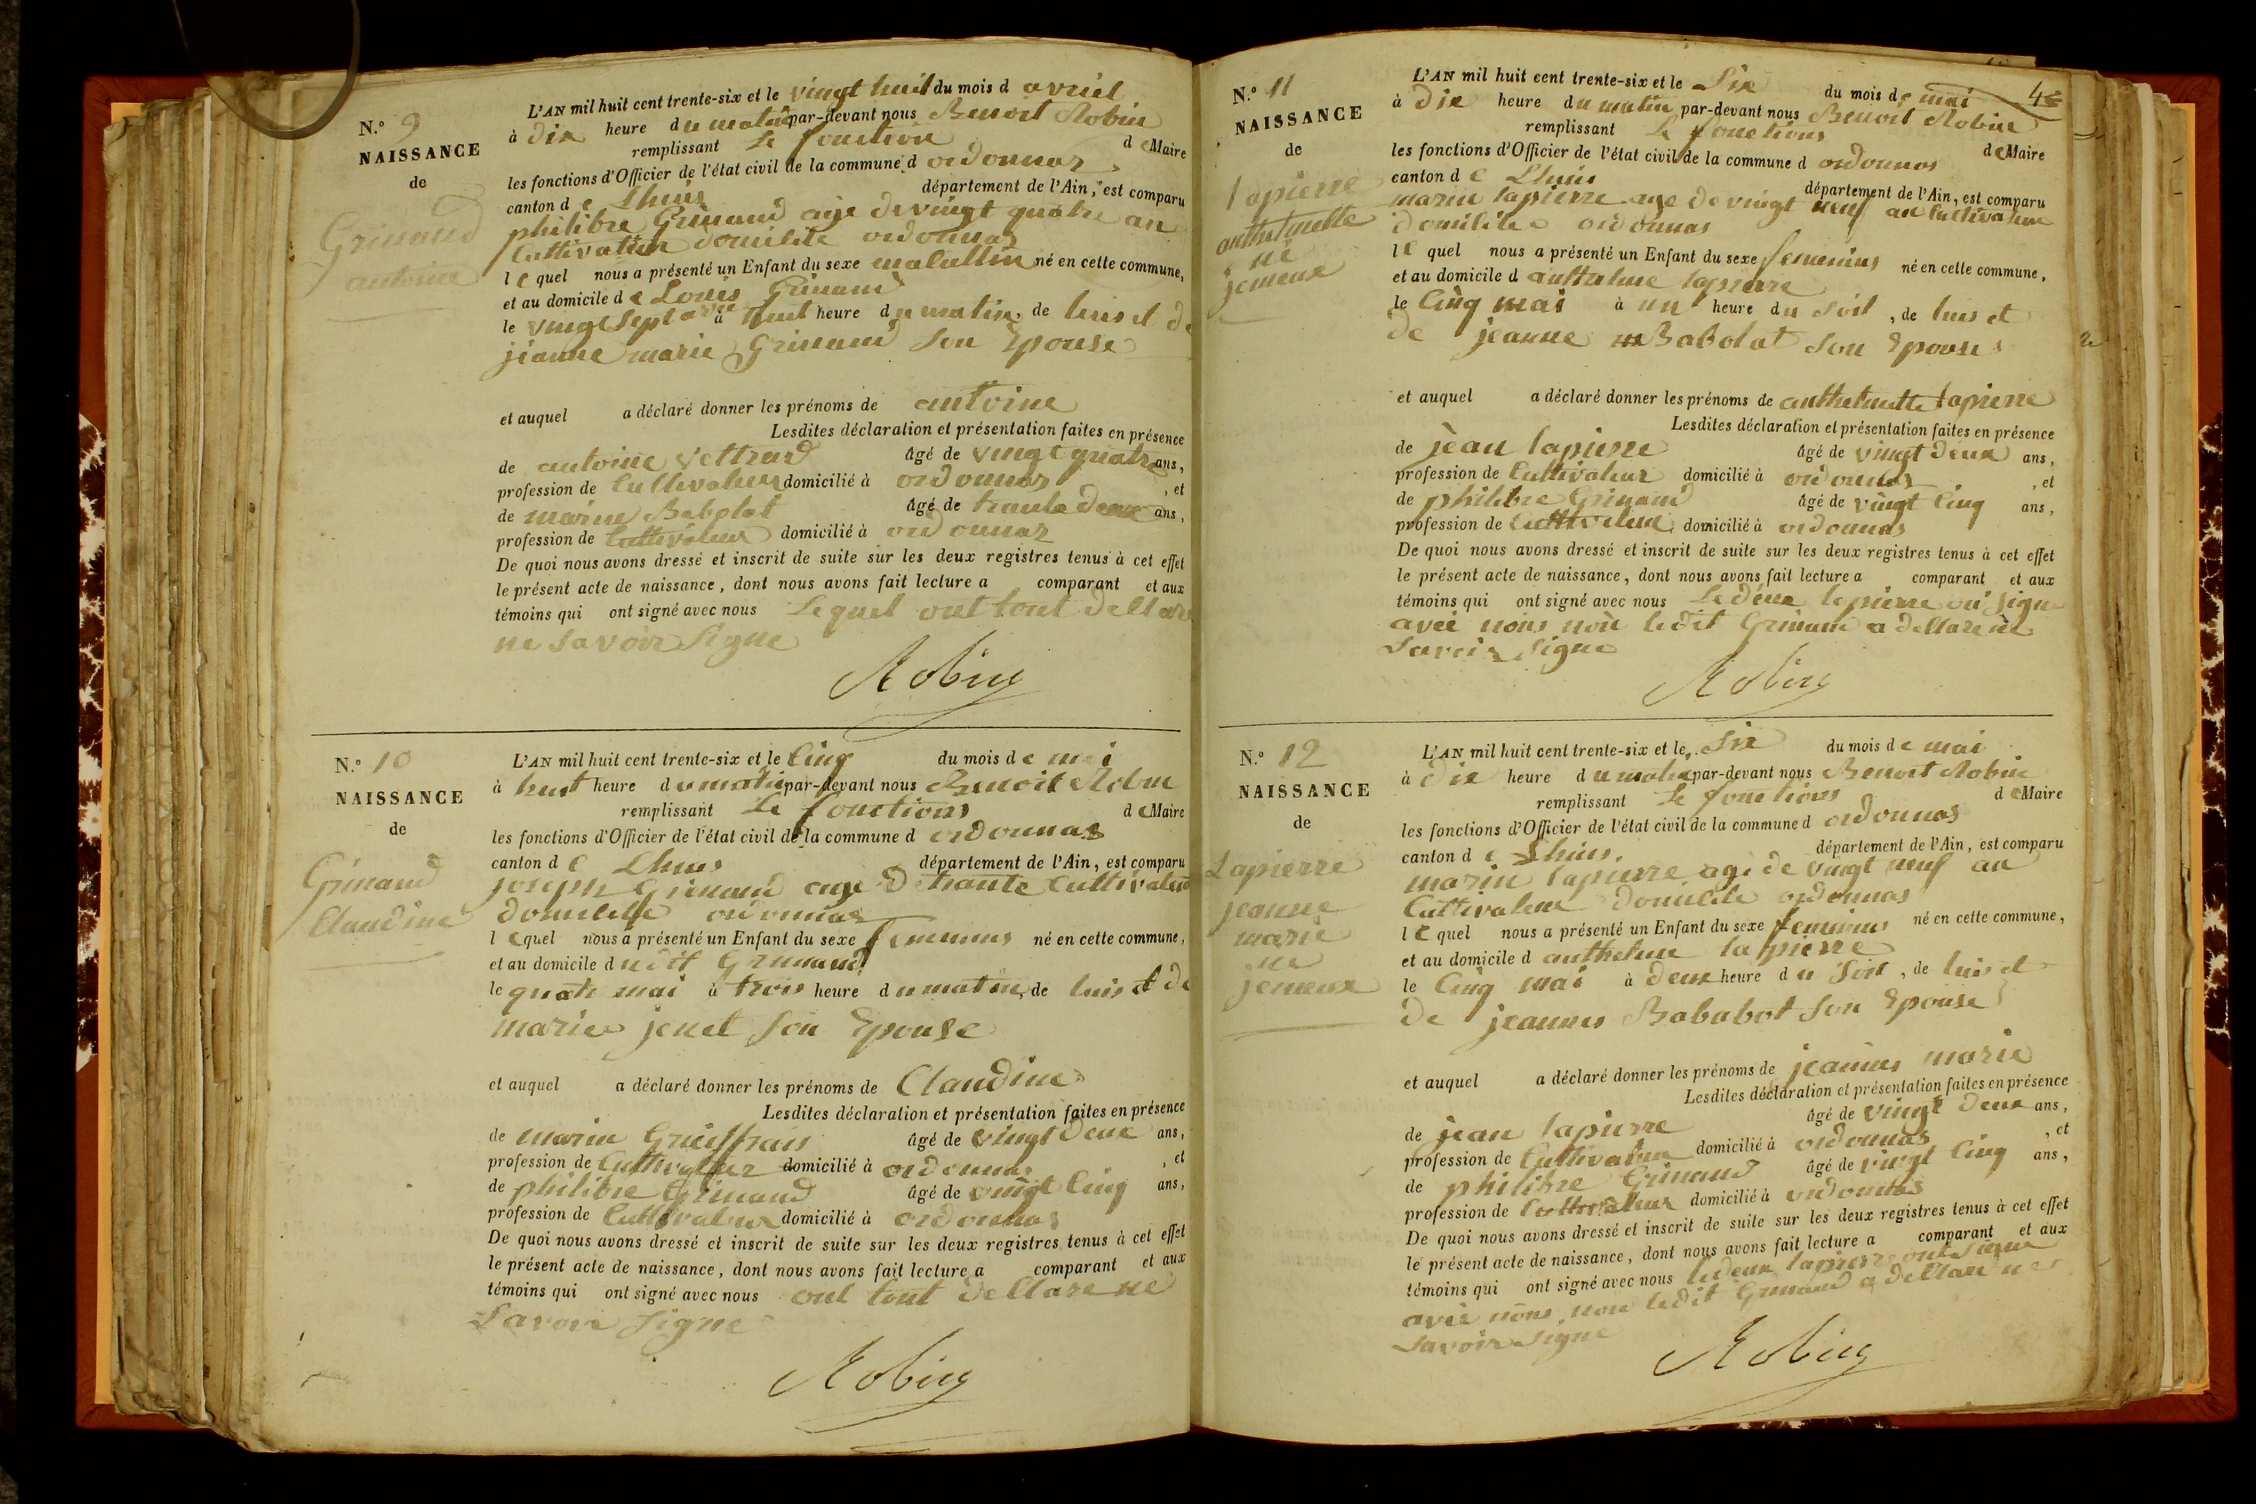 N.º 9
NAISSANCE
de
Grinand
antoine
L'AN mil huit cent trente-six et le vingt huit du mois d avriel
à dix heure du matin par-devant nous Benoit Robin
remplissant Le fonction de Maire
les fonctions d'Officier de l'état civil de la commune d ordonnas
canton de Lhuis département de l'Ain, est comparu
philibre Grinand age de vingt quatre an
Cultivateur domilile ordonnas
lequel nous a présenté un Enfant du sexe né en cette commune,
et au domicile de Louis Grinand
le vingt sept à huit heure du matin, de luis et de
jeanne marie Grinand son Epouse
et auquel a déclaré donner les prénoms de antoine
Lesdites déclaration et présentation faites en présence
de antoine Vettard âgé de vingt quatre ans,
profession de Cultivateur domicilié à ordonnas, et
de marin Babolat âgé de trante deux ans,
profession de Cultivateur domicilié à ordonnas
De quoi nous avons dressé et inscrit de suite sur les deux registres tenus à cet effet
le présent acte de naissance, dont nous avons fait lecture a comparant et aux
témoins qui ont signé avec nous Lequel ont tout dellare
ne savoir signe
Robin
N.º 10
NAISSANCE
de
Grinand
Claudine
L'AN mil huit cent trente-six et le Cinq du mois de mai
à huit heure du matin par-devant nous Benoit Robin
remplissant Le fonctions de Maire
les fonctions d'Officier de l'état civil de la commune d ordonnas
canton de Lhuis département de l'Ain, est comparu
joseph Grinand age de trante Cultivateur
domilile ordonnas
lequel nous a présenté un Enfant du sexe feminins né en cette commune,
et au domicile dudit Grinand
le quatre mai à trois heure du matin, de luis et de
marie jenet son Epouse
et auquel a déclaré donner les prénoms de Claudine
Lesdites déclaration et présentation faites en présence
de marin âgé de vingt deux ans,
profession de Cultivateur domicilié à ordonnas, et
de philibre Grinand âgé de vingt Cinq ans,
profession de Cultivateur domicilié à ordonnas
De quoi nous avons dressé et inscrit de suite sur les deux registres tenus à cet effet
le présent acte de naissance, dont nous avons fait lecture a comparant et aux
témoins qui ont signé avec nous ont tout dellare ne
Savoir signe
Robin
4
N.º 11
NAISSANCE
de
lapierre
anthelmette
né
jemeux
L'AN mil huit cent trente-six et le Six du mois de mai
à dix heure du matin par-devant nous Benoit Robin
remplissant Le fonctions de Maire
les fonctions d'Officier de l'état civil de la commune d ordonnas
canton de Lhuis département de l'Ain, est comparu
marin lapierre age de vingt neuf an Cultivateur
domilile ordonnas
lequel nous a présenté un Enfant du sexe feminins né en cette commune,
et au domicile d lapierre
le Cinq mai à un heure du soit, de luis et
de jeanne Babolat son Epouse
et auquel a déclaré donner les prénoms de anthelmette lapierre
Lesdites déclaration et présentation faites en présence
de jean lapierre âgé de vingt deux ans,
profession de Cultivateur domicilié à ordonnas, et
de philibre Grinand âgé de vingt Cinq ans,
profession de Cultivateur domicilié à ordonnas
De quoi nous avons dressé et inscrit de suite sur les deux registres tenus à cet effet
le présent acte de naissance, dont nous avons fait lecture a comparant et aux
témoins qui ont signé avec nous Le deux lapierre on signe
avec nous non ledit Grinand a dellare ne
Savoir signe
Robin
N.º 12
NAISSANCE
de
Lapierre
jeanne
marie
né
jemeux
L'AN mil huit cent trente-six et le Six du mois de mai
à dix heure du matin par-devant nous Benoit Robin
remplissant Le fonctions de Maire
les fonctions d'Officier de l'état civil de la commune d ordonnas
canton de Lhuis. département de l'Ain, est comparu
marin lapierre age de vingt neuf an
Cultivateur domilile ordonnas
lequel nous a présenté un Enfant du sexe feminins né en cette commune,
et au domicile d anthelme lapierre
le Cinq mai à deux heure du soit, de luis et
de jeannes Bababot son Epouse
et auquel a déclaré donner les prénoms de jeannes marie
Lesdites déclaration et présentation faites en présence
de jean lapierre âgé de vingt deux ans,
profession de Cultivateur domicilié à ordonnas, et
de philibre Grinand âgé de vingt Cinq ans,
profession de Cultivateur domicilié à ordonnas
De quoi nous avons dressé et inscrit de suite sur les deux registres tenus à cet effet
le présent acte de naissance, dont nous avons fait lecture a comparant et aux
témoins qui ont signé avec nous le deux lapierre ont signe
avec nous, non ledit Grinand a dellare ne
Savoir signe
Robin